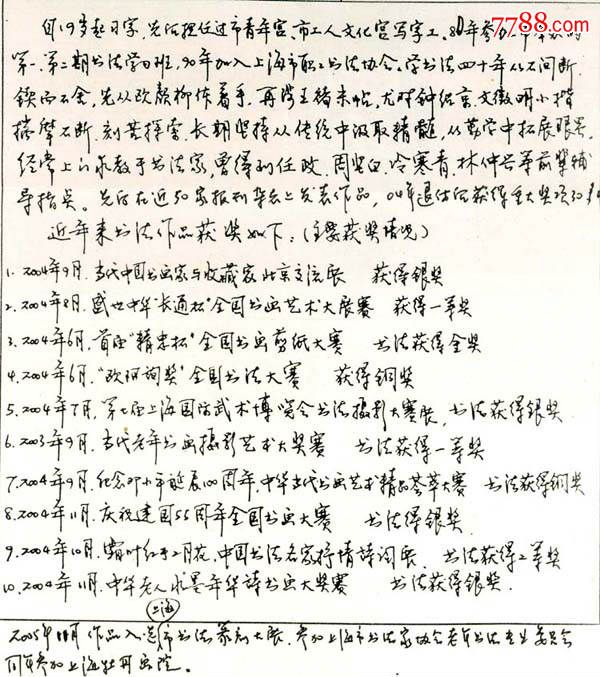 7788.com
自19岁起习字,先后担任过市青年宫、市工人文化宫写字工。8年参加
第一、第二期书法学习班,90年加入上海市职工书法协会。学书法四十年从不间断
锲而不舍,先从欧颜柳体着手,再学王褚米帖,尤对钟绍京、文徵明小楷
揣摩不断,刻苦探索,长期坚持从传统中汲取精髓,从勤学中拓展眼界,
经常上门求教于书法家,曾得到任政、周慧珺、冷寒青、林仲兴等前辈辅
导指点。先后在近50家报刊杂志上发表作品,04年退休后获得重大奖项30多
近年来书法作品获奖如下:(主要获奖情况)
1. 2004年9月.当代中国书画家与收藏家北京交流展 获得银奖
2. 2004年8月.盛世中华"长通杯"全国书画艺术大展赛 获得一等奖
3. 2004年6月.首届"精忠杯"全国书画剪纸大赛 书法获得金奖
4. 2004年6月."欧阳询奖"全国书法大赛 获得铜奖
5. 2004年7月.第七届上海国际武术博览会书法摄影大赛展.书法获得银奖
6. 2003年9月.当代老年书画摄影艺术大奖赛 书法获得一等奖
7. 2004年9月.纪念邓小平诞辰100周年.中华当代书画艺术精品荟萃大赛 书法获得铜奖
8. 2004年11月.庆祝建国55周年全国书画大赛 书法获得银奖
9. 2004年10月.霜叶红于二月花.中国书法名家抒情诗词展.书法获得二等奖
10. 2004年11月.中华老人水墨年华诗书画大奖赛 书法获得银奖.
上海
2005年11月作品入选市书法篆刻大展.参加上海市书法家协会老年书法专业委员会
同年参加上海牡丹画院。